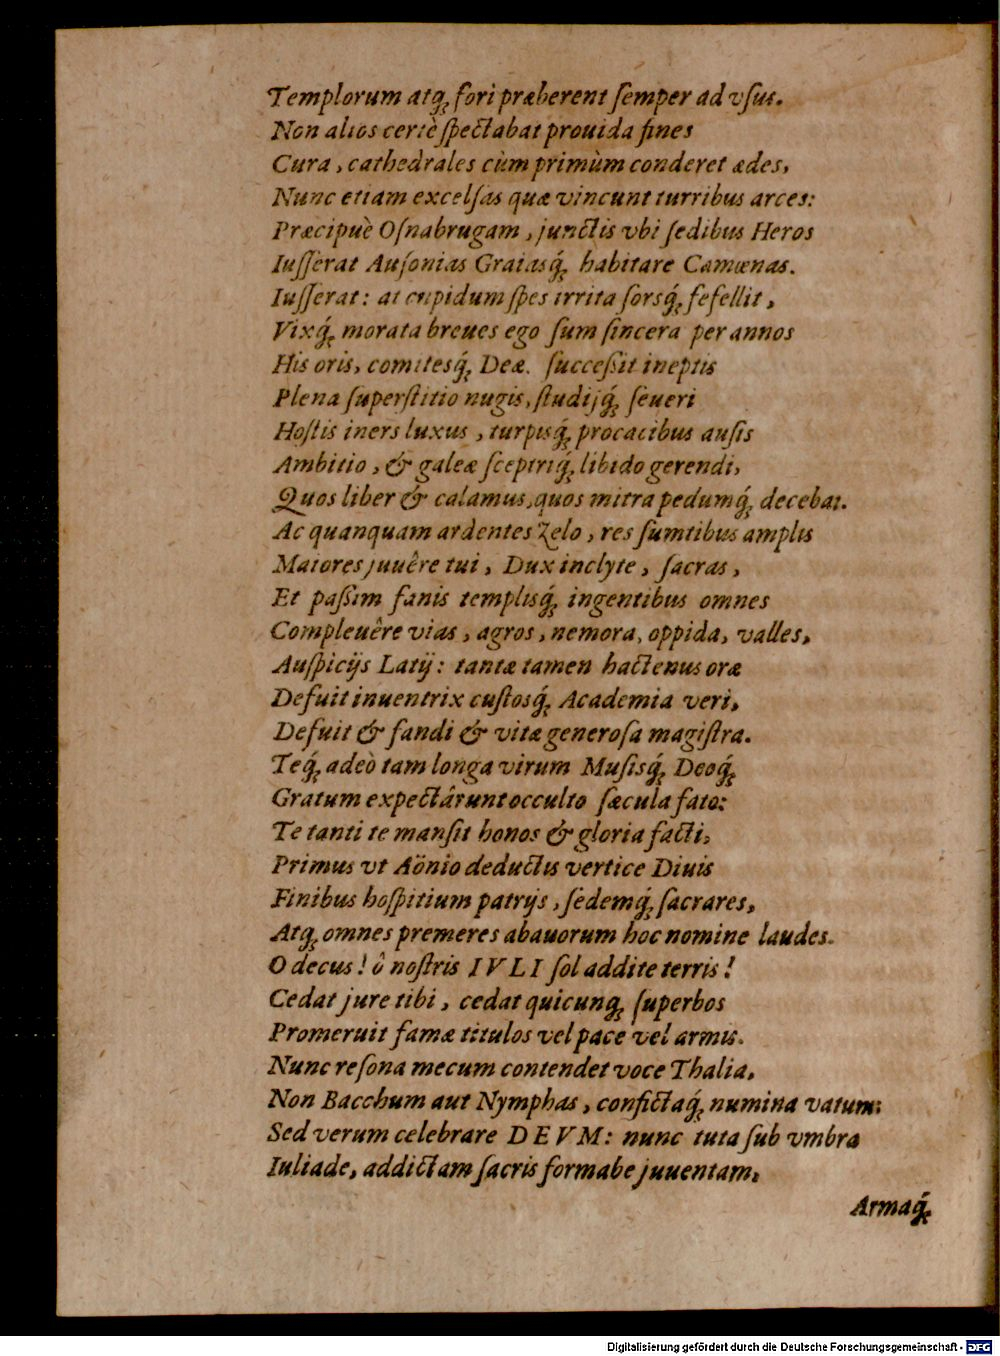 Templorum atq́; fori præberent ſemper ad vſus.
Non alios certè ſpectabat prouida fines
Cura, cathedrales cùm primùm conderet ædes,
Nunc etiam excelſas quæ vincunt turribus arces:
Præcipuè Oſnabrugam, junctis vbi ſedibus Heros
Iuſſerat Auſonias Graiasq́; habitare Camœnas.
Iuſſerat: at cupidum ſpes irrita ſorsq́; fefellit,
Vixq́; morata breues ego ſum ſincera per annos
His oris, comitesq́; Deæ. ſucceßit ineptis
Plena ſuperſtitio nugis, ſtudijq́; ſeueri
Hoſtis iners luxus, turpisq́; procacibus auſis
Ambitio, & galeæ ſceptriq́; libido gerendi,
Quos liber & calamus, quos mitra pedumq́; decebat.
Ac quanquam ardentes zelo, res ſumtibus amplis
Maiores juuêre tui, Dux inclyte, ſacras,
Et paßim fanis templisq́; ingentibus omnes
Compleuêre vias, agros, nemora, oppida, valles,
Auſpicijs Latij: tantæ tamen hactenus oræ
Defuit inuentrix cuſtosq́; Academia veri,
Defuit & fandi & vitæ generoſa magiſtra.
Teq́; adeò tam longa virum Muſisq́; Deoq́;
Gratum expectârunt occulto ſæcula fato:
Te tanti te manſit honos & gloria facti,
Primus vt Aönio deductis vertice Diuis
Finibus hoſpitium patrijs, ſedemq́; ſacrares,
Atq́; omnes premeres abauorum hoc nomine laudes.
O decus! ô noſtris IVLI ſol addite terris!
Cedat jure tibi, cedat quicunq́; ſuperbos
Promeruit famæ titulos vel pace vel armis.
Nunc reſona mecum contendet voce Thalia,
Non Bacchum aut Nymphas, confictaq́; numina vatum;
Sed verum celebrare DEVM: nunc tuta ſub vmbra
Iuliade, addictam ſacris formabe juuentam,
Armaq́;
Digitalisierung gefördert durch die Deutsche Forschungsgemeinschaft - DFG